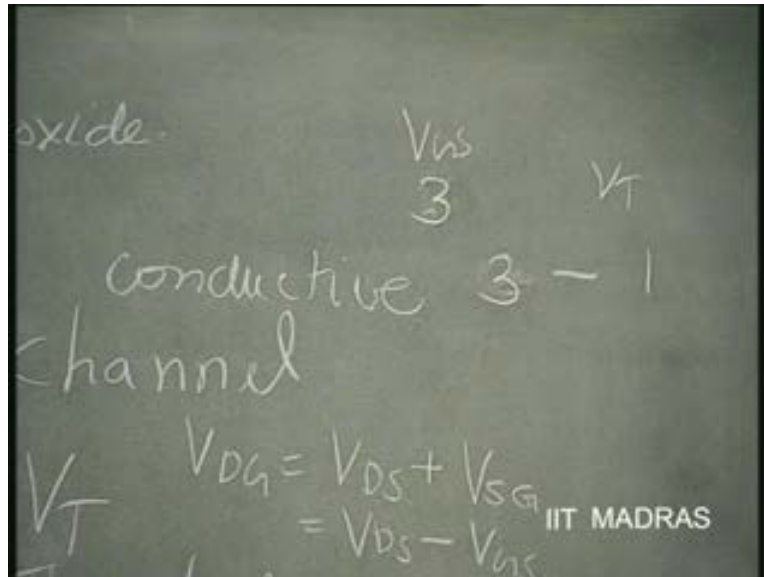 oxide.
V_GS
3
V_T
conductive 3 - 1
channel
V_DG = V_DS + V_SG
V_T
= V_DS - V_GS
IIT MADRAS